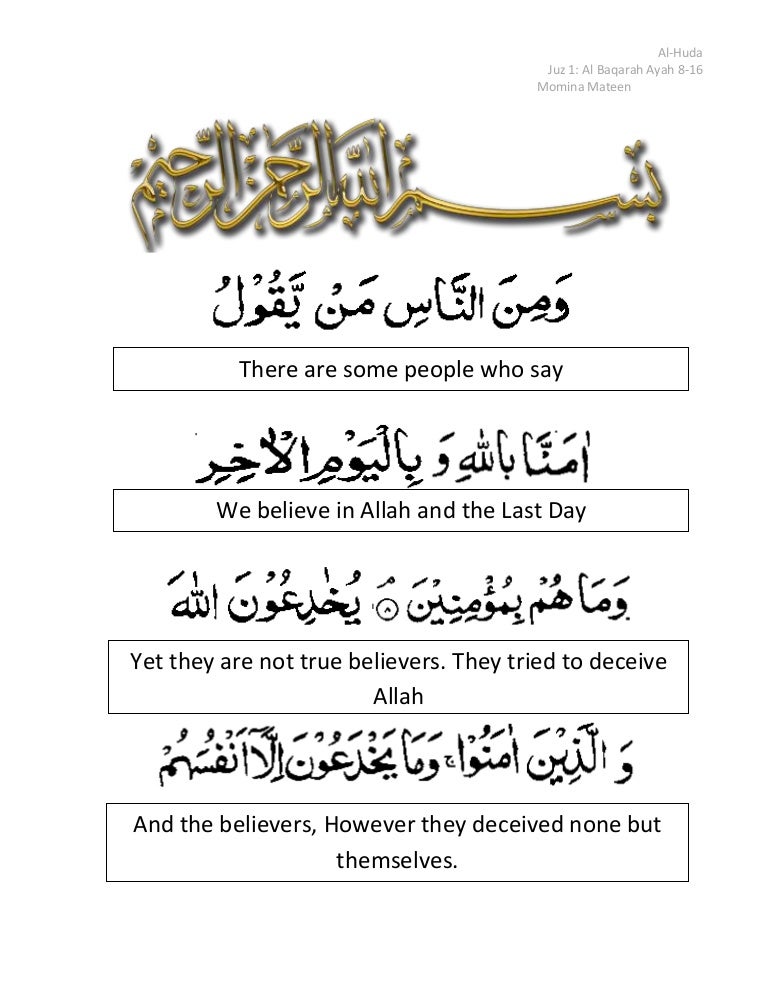 Al-Huda
Juz 1: Al Baqarah Ayah 8-16
Momina Mateen
بسم الله الرحمن الرحيم
وَمِنَ النَّاسِ مَنْ يَّقُوْلُ
There are some people who say
اٰمَنَّا بِاللّٰهِ وَ بِالْيَوْمِ الْاٰخِرِ
We believe in Allah and the Last Day
وَمَا هُمْ بِمُؤْمِنِيْنَ ۘ‏﴿۸﴾ يُخٰدِعُوْنَ اللّٰهَ
Yet they are not true believers. They tried to deceive
Allah
وَ الَّذِيْنَ اٰمَنُوْا ۚ وَمَا يَخْدَعُوْنَ اِلَّاۤ اَنْفُسَهُمْ
And the believers, However they deceived none but
themselves.